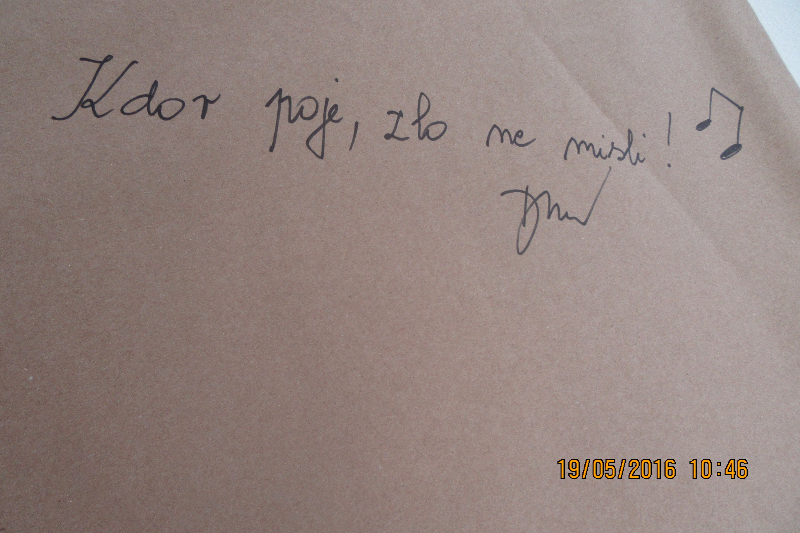 Kdor poje, zlo ne misli!
19/05/2016 10:46